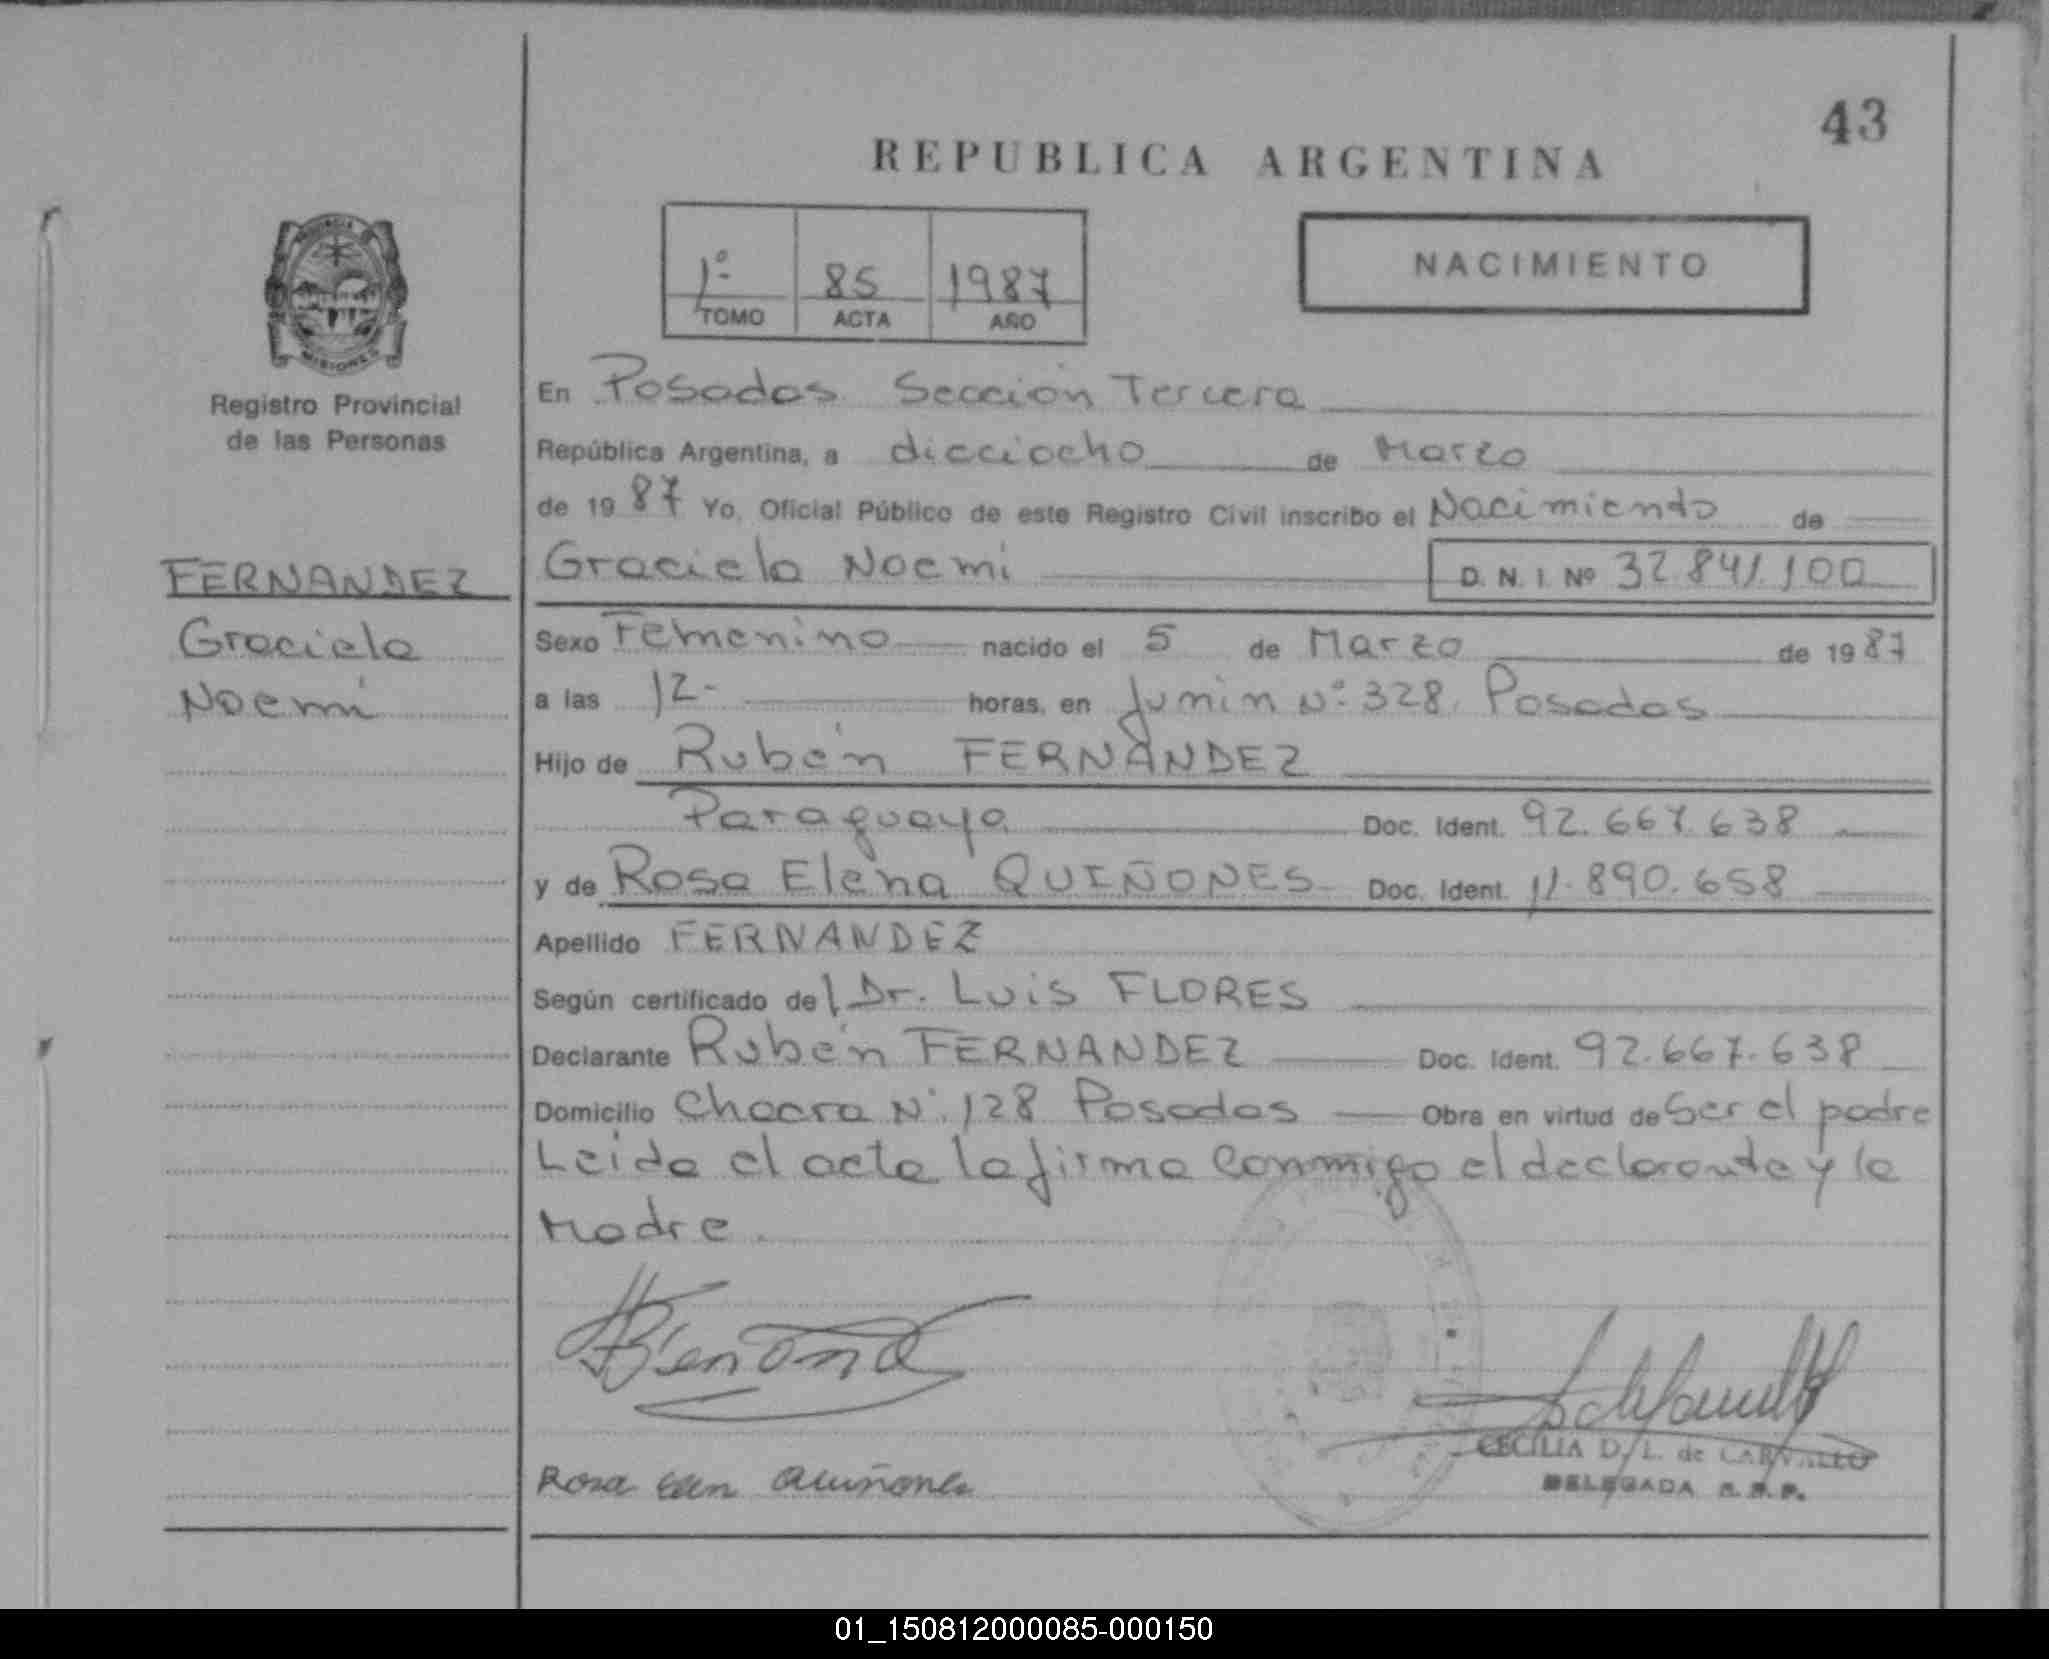 43
REPUBLICA ARGENTINA
1º 85 1987
TOMO ACTA AÑO
NACIMIENTO
MISIONES
Registro Provincial
de las Personas
FERNANDEZ
Graciela
Noemí
En Posadas Sección Tercera
República Argentina, a dieciocho de Marzo
de 1987 Yo, Oficial Público de este Registro Civil inscribo el Nacimiento de
Graciela Noemí D. N. I. Nº 32.841.100
Sexo Femenino nacido el 5 de Marzo de 1987
a las 12- horas, en Junin Nº 328. Posadas
Hijo de Rubén FERNÁNDEZ
Paraguaya Doc. Ident. 92.667.638
y de Rosa Elena QUIÑONES Doc. Ident. 11.890.658
Apellido FERNANDEZ
Según certificado del Dr. Luis FLORES
Declarante Rubén FERNANDEZ Doc. Ident. 92.667.638
Domicilio Chacra Nº 128 Posadas Obra en virtud de Ser el padre
Leida el acta la firma conmigo el declarante y la
Madre.
Rosa Quiñones
CECILIA D. L. de CARVALLO
DELEGADA R.P.
01_150812000085-000150